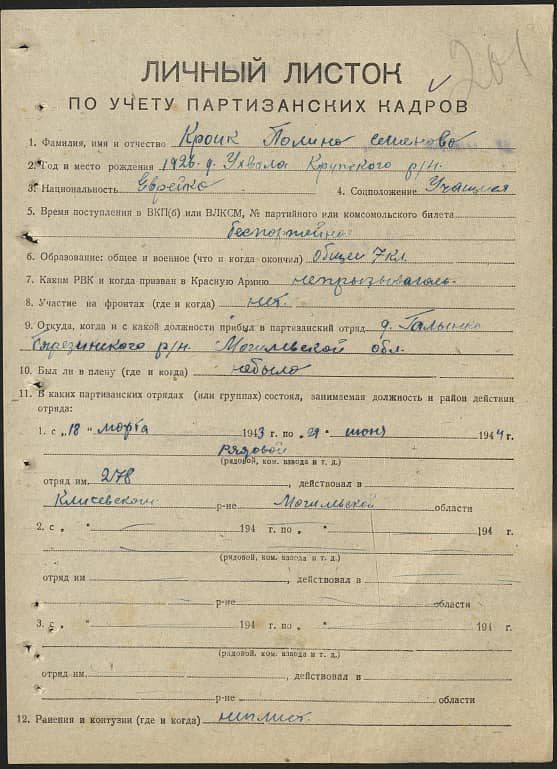 201
ЛИЧНЫЙ ЛИСТОК
ПО УЧЕТУ ПАРТИЗАНСКИХ КАДРОВ
1. Фамилия, имя и отчество Кроик Полина Семеновна
2. Год и место рождения 1926 д. Ухвала Крупского р/н.
3. Национальность Еврейка 4. Соцположение Учащийся
5. Время поступления в ВКП(б) или ВЛКСМ, № партийного или комсомольского билета
беспартейная
6. Образование: общее и военное (что и когда окончил) Общее 7 кл.
7. Каким РВК и когда призван в Красную Армию
8. Участие на фронтах (где и когда) нет.
9. Откуда, когда и с какой должности прибыл в партизанский отряд д. Галынка
Березинского р/н. Могилевской обл.
10. Был ли в плену (где и когда) небыло
11. В каких партизанских отрядах (или группах) состоял, занимаемая должность и район действия
отряда:
1. с „18" марта 1943 г. по „29" июня 1944 г.
рядовой
(рядовой, ком. взвода и т. д.)
отряд им. 278, действовал в
Кличевском р-не Могильской области
2. с „ " 194 г. по „ " 194 г.
(рядовой, ком. взвода и т. д.)
отряд им, действовал в
р-не области
3. с „ " 194 г. по „ " 194 г.
(рядовой, ком. взвода и т. д.)
отряд им., действовал в
р-не области
12. Ранения и контузии (где и когда)